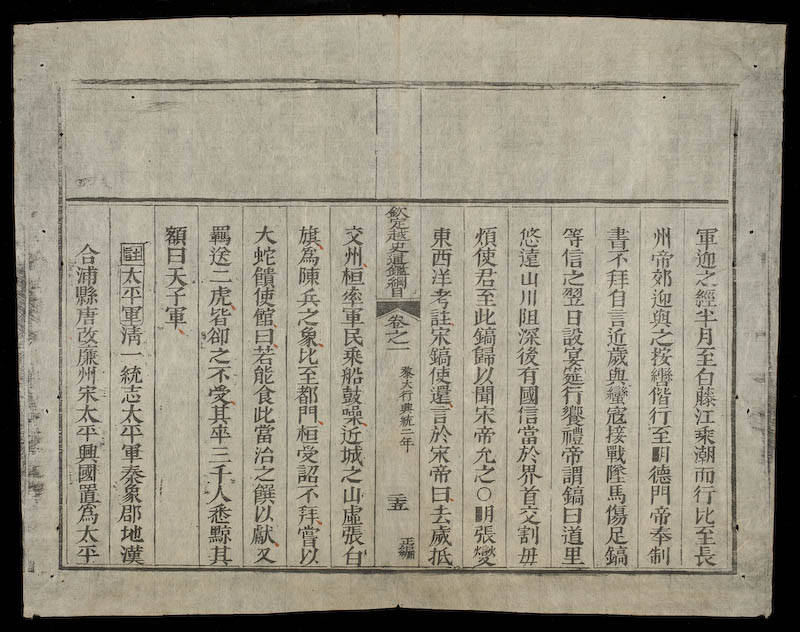 軍迎之經半月至白藤江乘潮而行比至長
州帝郊迎與之按轡偕行至明德門帝奉制
書不拜自言近歲與蠻寇接戰墜馬傷足鎬
等信之翌日設宴莚行饗禮帝謂鎬曰道里
悠遠山川阻深後有國信當於界首交割毋
煩使君至此鎬歸以聞宋帝允之○明張燮
東西洋考註宋鎬使還言於宋帝曰去歲抵
欽定越史通鑑綱目 卷之一 黎大行興統二年 正編
交州桓率軍民乘船鼓噪近城之山虛張白
旗爲陳兵之象比至都門桓受詔不拜嘗以
大蛇饋使館曰若能食此當治之饌以獻又
羈送二虎皆卻之不受其卒三千人悉黥其
額曰天子軍
註太平軍清一統志太平軍秦象郡地漢
合浦縣唐改廉州宋太平興國置爲太平